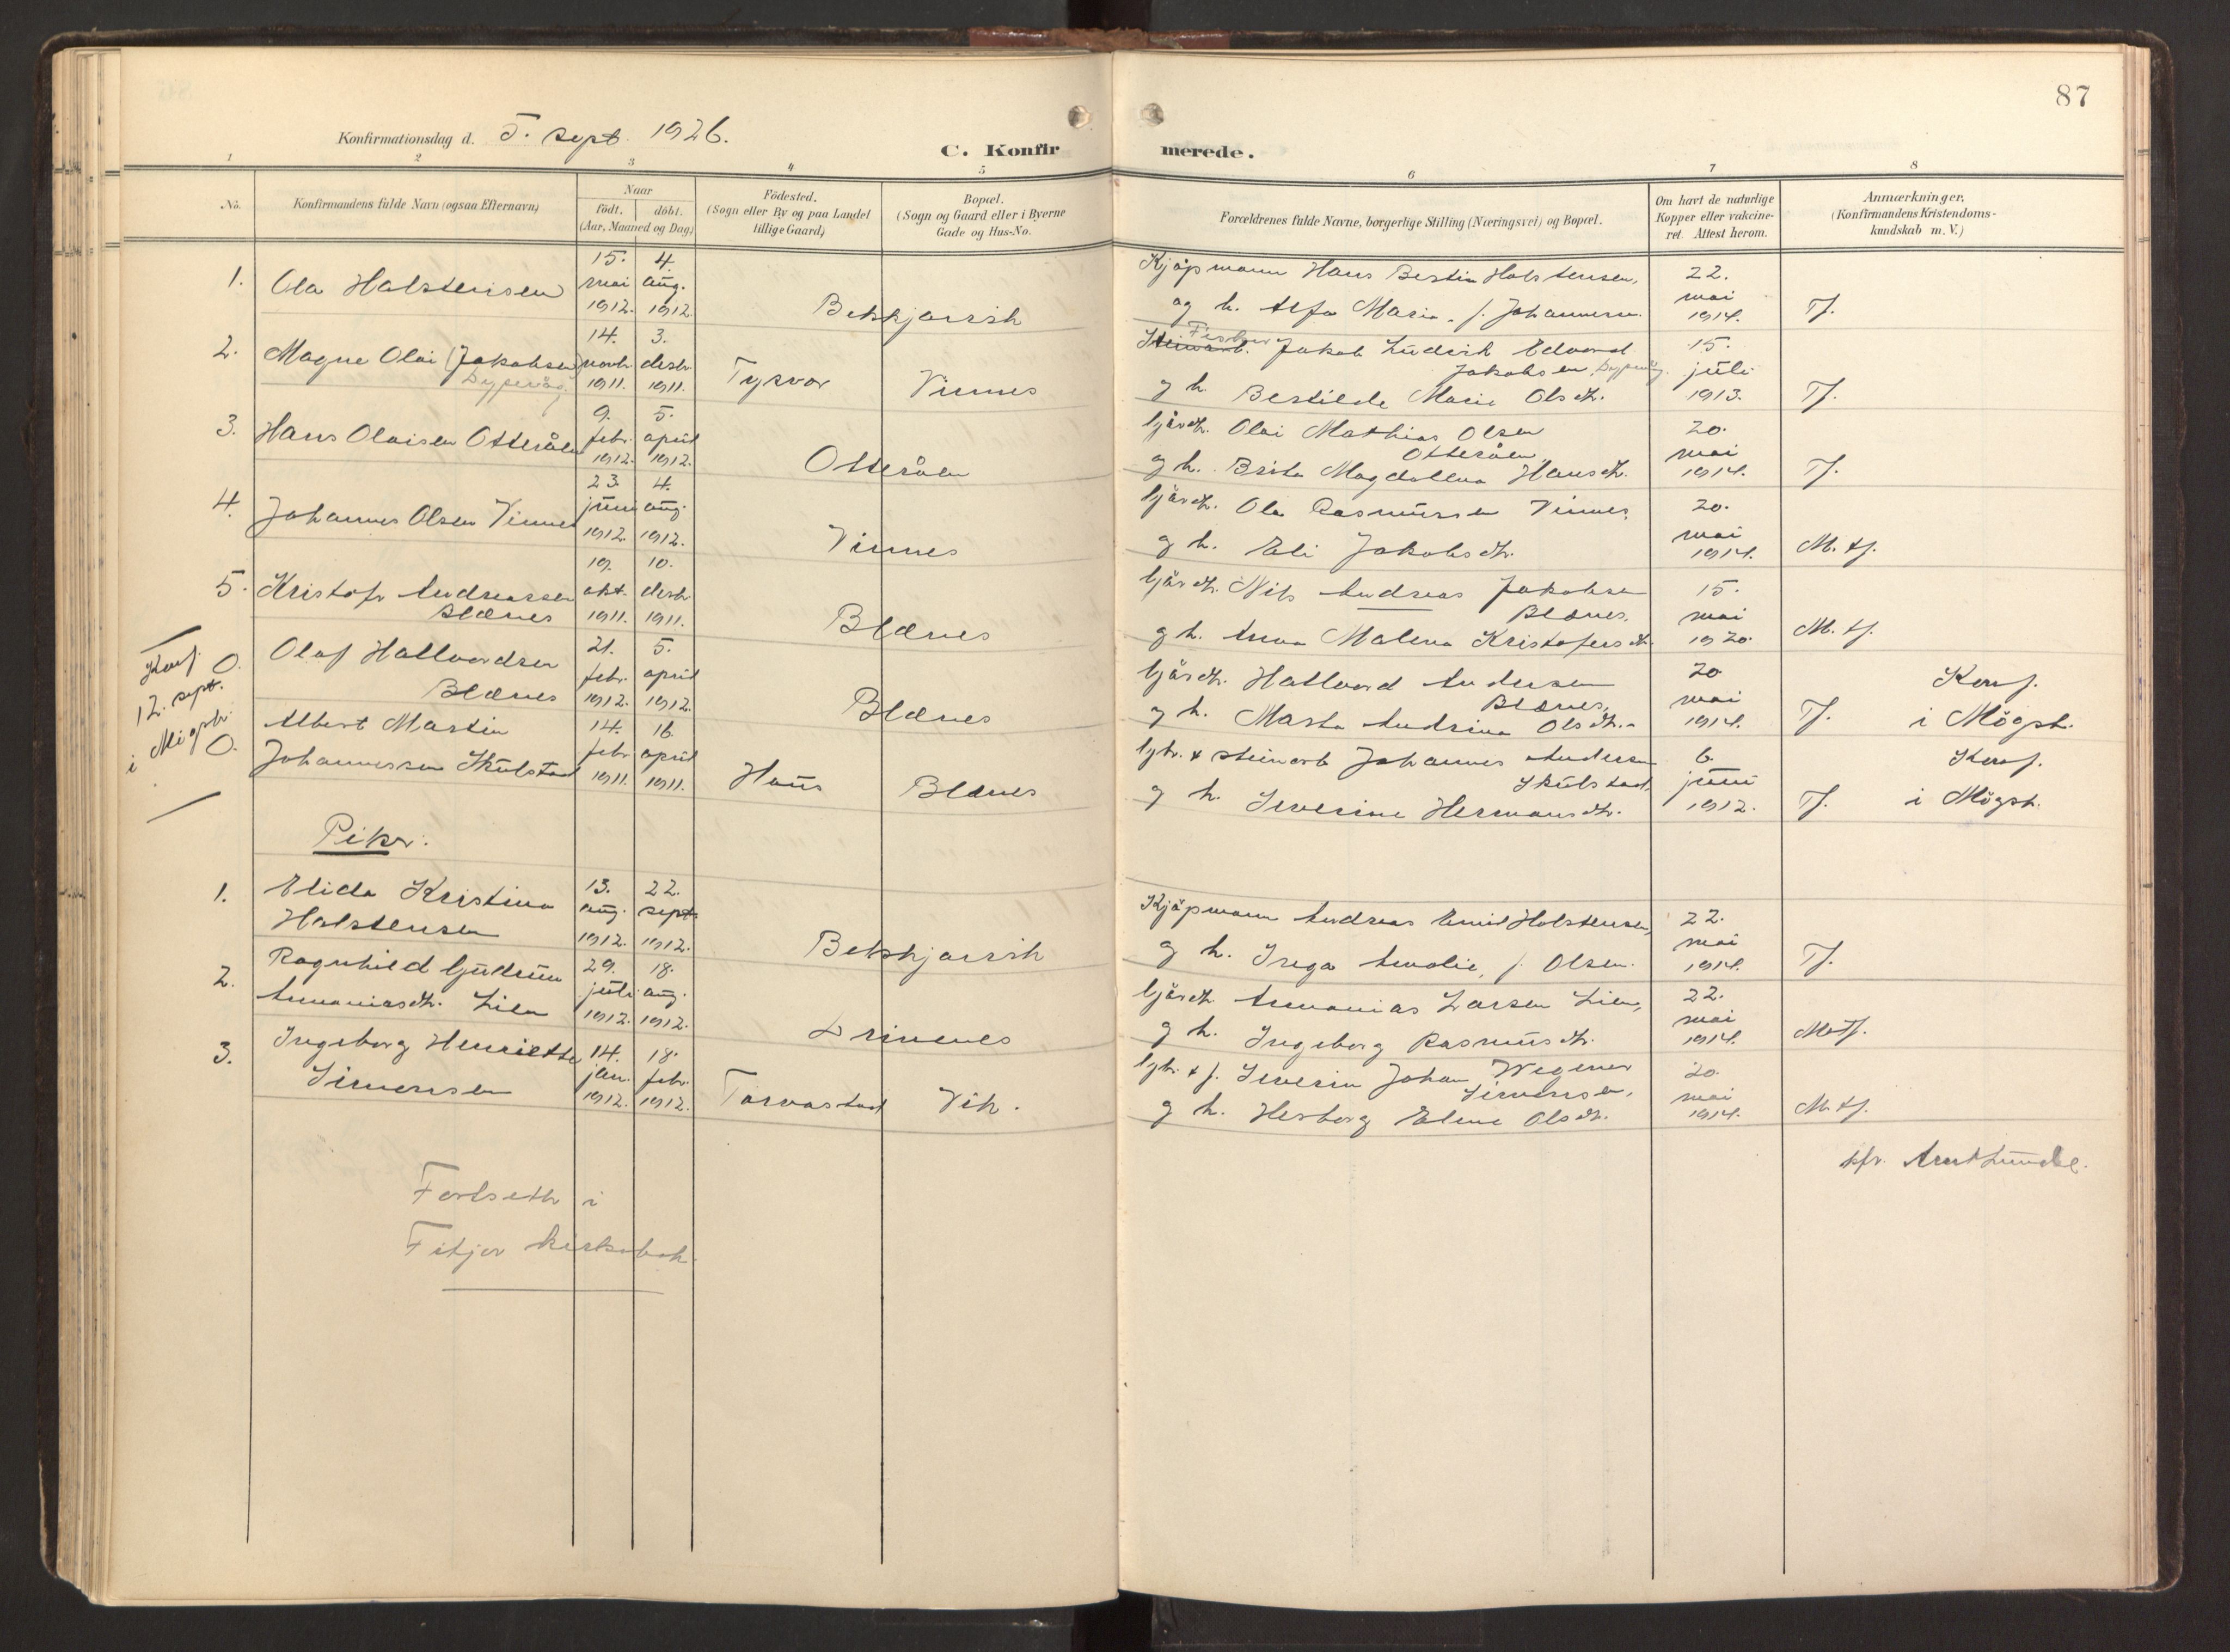 87
Konfirmationsdag d. 5. sept. 1926.
C. Konfirmerede.
1 2 3 4 5 6 7 8
No.
Konfirmandens fulde Navn (ogsaa Efternavn)
Naar
födt. döbt.
(Aar, Maaned og Dag)
Födested.
(Sogn eller By og paa Landet
tillige Gaard)
Bopæl.
(Sogn og Gaard eller i Byerne
Gade og Hus-No.
Forældrenes fulde Navne, borgerlige Stilling (Næringsvei) og Bopæl.
Om havt de naturlige
Kopper eller vakcine-
ret. Attest herom.
Anmærkninger,
(Konfirmandens Kristendoms-
kundskab m. V.)
1. Ola Halstensen
15. mai 1912. 4. aug. 1912
Bekkjarvik
Kjøpmann Hans Bertin Halstensen,
og h. Alfa Maria f. Johannesen.
22. mai 1914.
Tf.
2. Magne Olai (Jakobsen)
Dyperåg.
14. novbr. 1911. 3. desbr. 1911.
Tysvær
Vinnes
Steinarb. Fisker Jakob Ludvik Edvard
Jakobsen, Dyperåg.
g h. Bertilde Marie Olsdtr.
15. juli 1913.
Tf.
3. Hans Olaisen Otteråen
9. febr. 1912. 5. april 1912.
Otteråen
Gårdbr. Olai Mathias Olsen
Otteråen,
g h. Brita Magdalena Hansdtr.
20. mai 1914.
Tf.
4. Johannes Olsen Vinnes
23. juni 1912. 4. aug. 1912.
Vinnes
Gårdbr. Ola Rasmussen Vinnes,
g h. Eli Jakobsdtr.
20. mai 1914.
M. tf.
5. Kristofer Andreassen
Blænes
19. okt. 1911. 10. desbr. 1911.
Blænes
Gårdbr. Nils Andreas Jakobsen
Blænes,
g h. Anna Malena Kristofersdtr.
15. mai 1920.
M. tf.
Konf.
12. sept.
i Mögstr.
0. Olaf Hallvardsen
Blænes
21. febr. 1912. 5. april 1912.
Blænes
Gårdbr. Hallvard Andersen
Blænes,
g h. Marta Andrina Olsdtr.
20 mai 1914.
Tf.
Konf.
i Mögstr.
0. Albert Martin
Johannessen Skulstad
14. febr. 1911. 16. april 1911.
Haus
Blænes
Gbr. & steinarb Johannes Andersen
Skulstad,
g h. Severine Hermansdtr.
6. juni 1912.
Tf.
Konf.
i Mögstr.
Piker:
1. Elida Kristina
Halstensen
13. aug. 1912. 22. sept. 1912.
Bekkjarvik
Kjøpmann Andreas Emil Halstensen,
g h. Inga Amalie, f. Olsen.
22. mai 1914.
Tf.
2. Ragnhild Gudrun
Ananiasdtr. Lien
29. juli 1912. 18. aug. 1912.
Drivenes
Gårdbr. Ananias Larsen Lien,
g h. Ingeborg Rasmusdtr.
22. mai 1914.
Mtf.
3. Ingeborg Henriette
Simonsen
14. jan. 1912. 18. febr. 1912.
Torvastad
Vik.
Gbr. & f. Severin Johan Wegener
Simonsen,
g h. Herborg Elene Olsdtr.
20. mai 1914.
M. tf.
kfr. Arnt Lunde.
Fortseth i
Fitjar kirkebok.